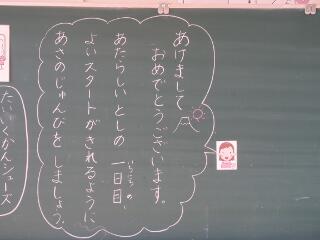 あけまして
おめでとうございます。
あたらしいとしの 一日目、
いちにち め
よいスタートがきれるように
あさのじゅんびを しましょう。
たいいくかんシューズ